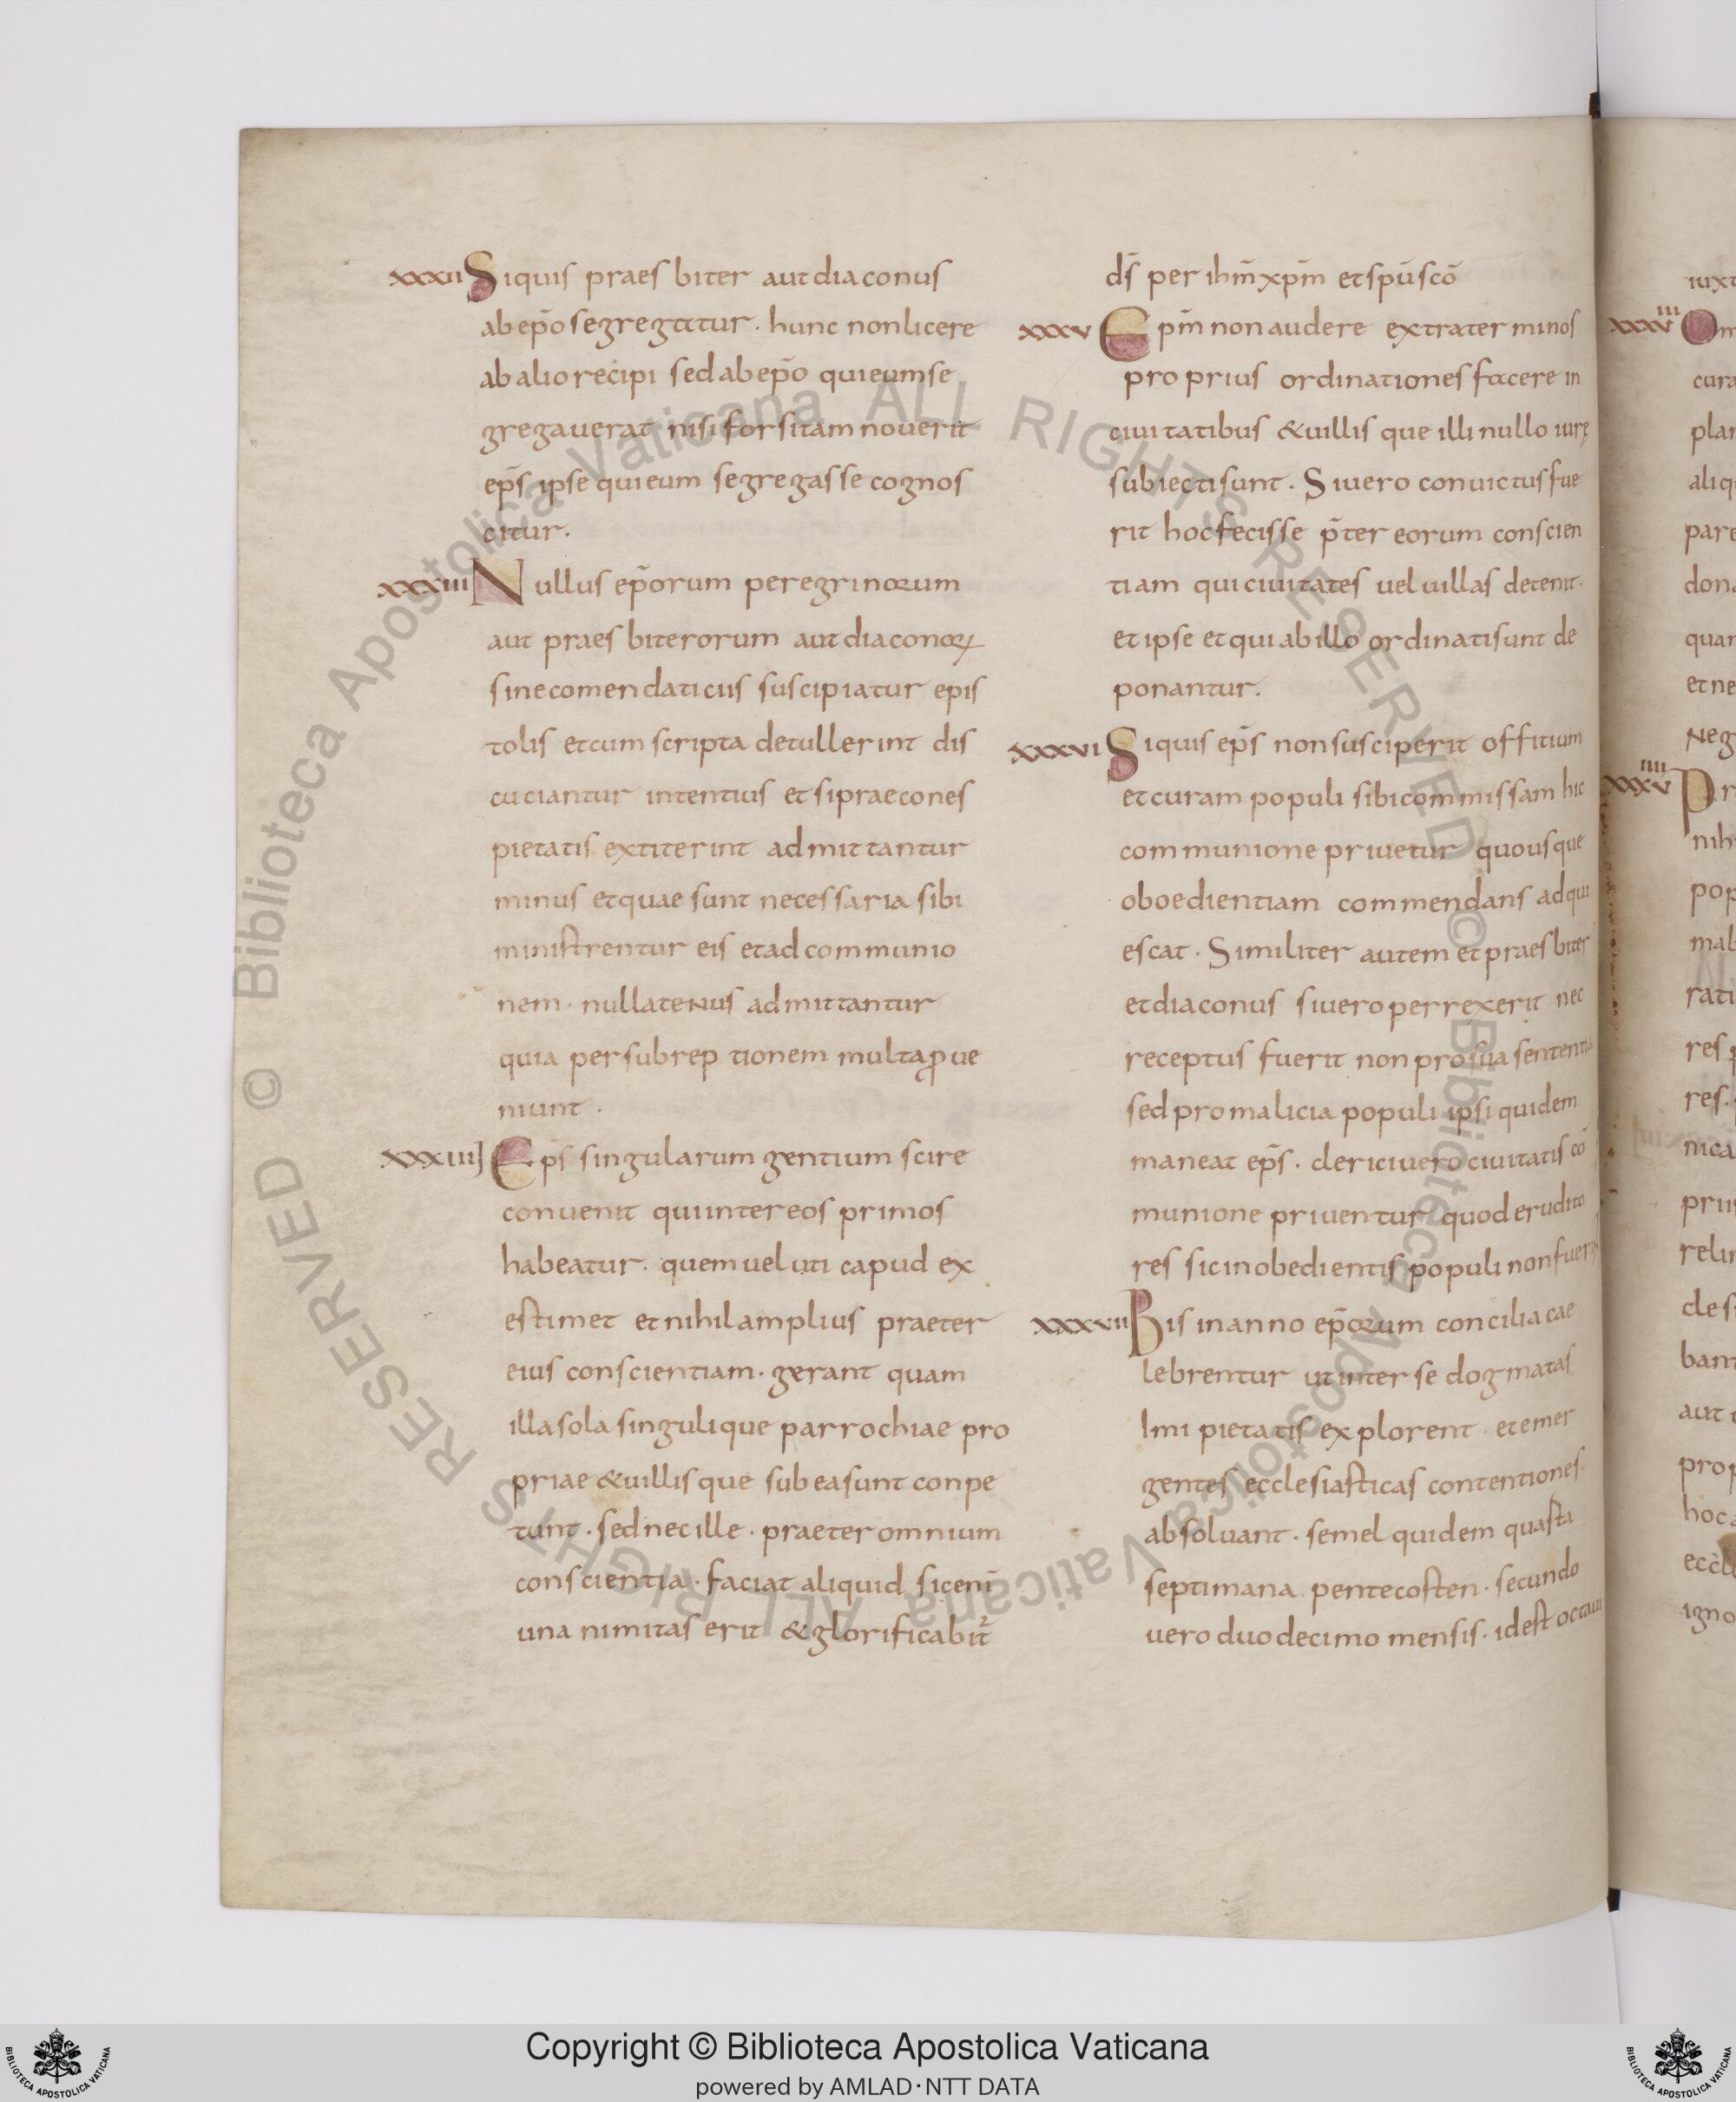 xxxii Siquis praesbiter aut diaconus
ab ep̄o segregatur · hunc non licere
ab alio recipi sed ab ep̄o qui eum se
gregauerat nisi forsitam nouerit
ep̄s ipse qui eum segregasse cognos
citur ·
xxxiii Nullus ep̄orum peregrinorum
aut praesbiterorum aut diaconoꝝ
sine comendaticiis suscipiatur epis
tolis et cum scripta detullerint dis
cuciantur intentius et si praecones
pietatis extiterint admittantur
minus et quae sunt necessaria sibi
ministrentur eis et ad communio
nem · nullatenus admittantur
quia per subreptionem multa ꝓue
niunt ·
xxxiiii Ep̄s singularum gentium scire
conuenit qui inter eos primos
habeatur · quem ueluti capud ex
estimet et nihil amplius praeter
eius conscientiam · gerant quam
illa sola singulique parrochiae pro
priae & uillisque sub ea sunt conpe
tunt · sed nec ille · praeter omnium
conscientia · faciat aliquid sic eni̅
unanimitas erit & glorificabit̄
d̄s per ih̄m xp̄m et sp̄u sc̄o
xxxv Ep̄m non audere extra terminos
proprius ordinationes facere in
ciuitatibus & uillis que illi nullo iurę
subiecti sunt · Si uero conuictus fue
rit hoc fecisse p̄ter eorum conscien
tiam qui ciuitates uel uillas detenit ·
et ipse et qui ab illo ordinati sunt de
ponantur ·
xxxvi Siquis ep̄s non susciperit offitium
et curam populi sibi commissam hic
communione priuetur quousque
oboedientiam commendans adqui
escat · Similiter autem et praesbiter
et diaconus si uero perrexerit nec
receptus fuerit non pro sua sententia
sed pro malicia populi ipsi quidem
maneat ep̄s · clerici uero ciuitatis cō
munione priuentur quod erudito
res sic inobedientis populi non fuerin
xxxvii Bis in anno ep̄orum concilia cae
lebrentur ut inter se dogmatas
lmi pietatis explorent et emer
gentes ecclesiasticas contentiones ·
absoluant · semel quidem quasta
septimana pentecosten · secundo
uero duodecimo mensis · id est octaui
iuxt
xxxviii Om
cura
plan
aliq
pare
dona
quan
et ne
Neg
xxxviiii Pr
nih
pop
mab
rati
res
res ·
nica
priu
relin
cles
bant
aut
prop
hoc a
eccl
igno
© Biblioteca Apostolica Vaticana ALL RIGHTS RESERVED © Biblioteca Apostolica Vaticana ALL RIGHTS RESERVED
Copyright © Biblioteca Apostolica Vaticana
powered by AMLAD·NTT DATA
BIBLIOTECA APOSTOLICA VATICANA
BIBLIOTECA APOSTOLICA VATICANA